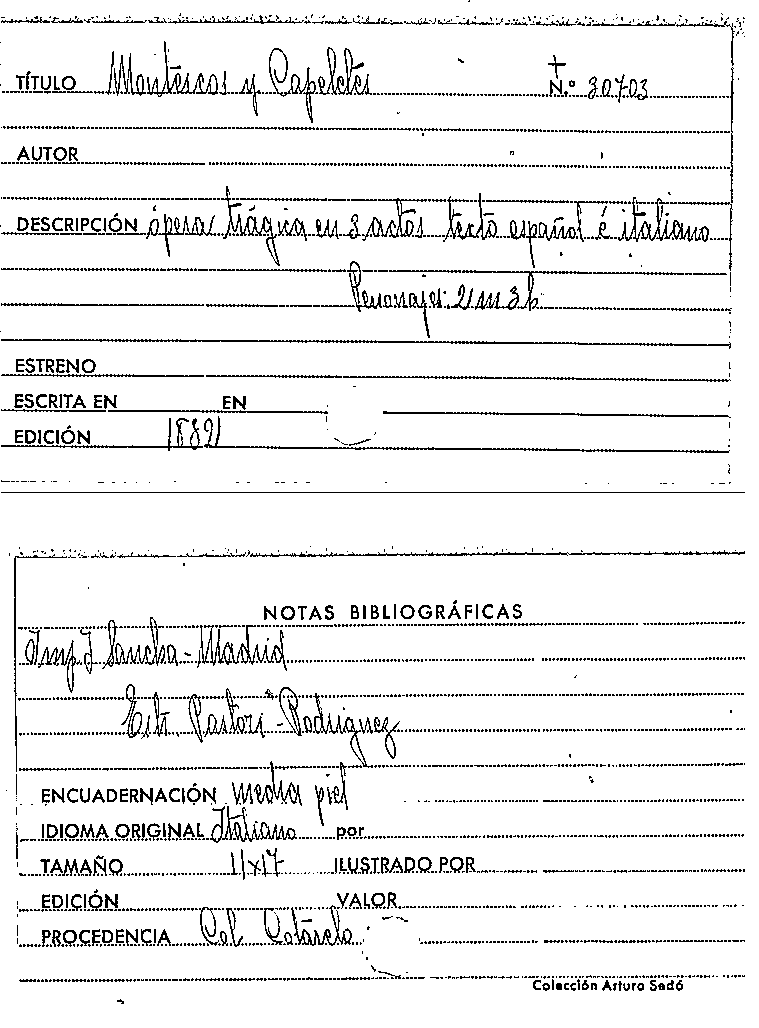 TÍTULO Montescos y Capeletes N.º 30703
AUTOR
DESCRIPCIÓN ópera trágica en 3 actos texto español é italiano
Personajes: 2 m 3 h
ESTRENO
ESCRITA EN EN
EDICIÓN
NOTAS BIBLIOGRÁFICAS
Imp. I Sancha - Madrid
Estr. Pastori - Rodriguez
ENCUADERNACIÓN media piel
IDIOMA ORIGINAL Italiano por
TAMAÑO 11x17 ILUSTRADO POR
EDICIÓN VALOR
PROCEDENCIA Col. Cotarelo
Colección Arturo Sedó